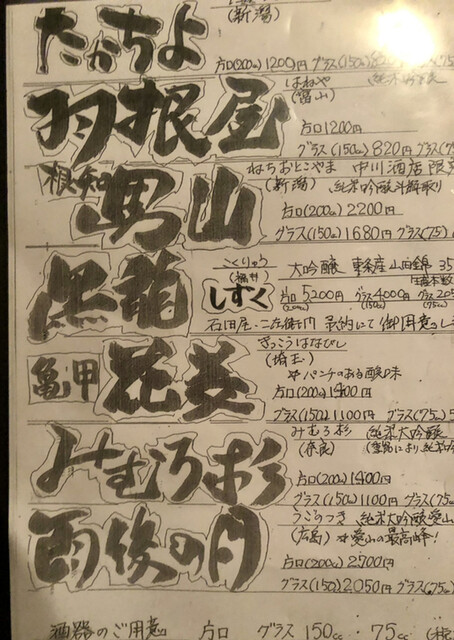 (新潟)
たかちよ
片口(200cc)1200円 グラス(150cc)
羽根屋
はねや
(富山)
片口1200円
グラス(150cc)820円 グラス(75
根知 男山
ねちおとこやま 中川酒店限
(新潟) 純米吟醸斗瓶取り
片口(200cc)2200円
グラス(150cc)1680円 グラス(75)
黒龍
こくりゅう
(福井)
しずく
大吟醸 東条産山田錦 35
片口5200円 グラス4000円 グラス205
(200cc) (150cc) (75cc)
石田屋・二左衛門 予約にて御用意
亀甲 花菱
きっこうはなびし
(埼玉)
パンチのある酸味
片口(200cc)1400円
グラス(150cc)1100円 グラス(75cc)5
みむろ杉
みむろ杉 純米大吟醸
(奈良)
片口(200cc)1400円
グラス(150cc)1100円 グラス(75cc)
雨後の月
うごのつき 純米大吟醸愛山
(広島) 愛山の最高峰!
片口(200cc)2700円
グラス(150)2050円 グラス(75cc)
酒器のご用意 片口 グラス 150cc・75cc